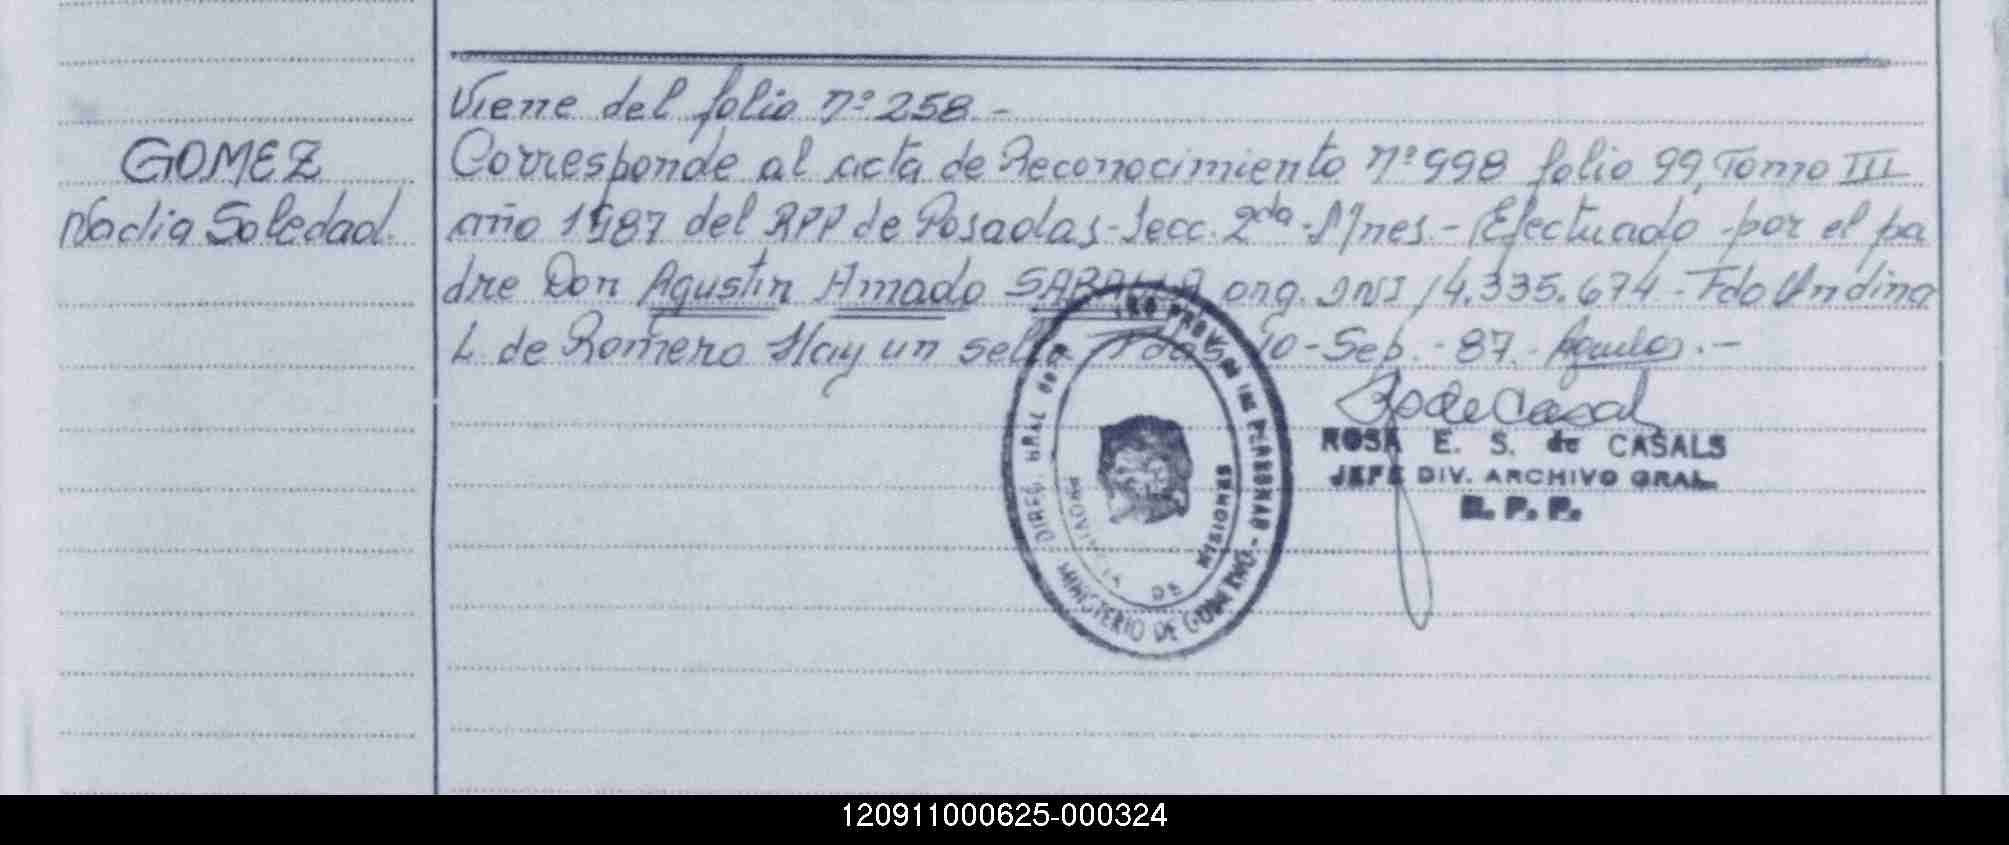 Viene del folio nº 258.-
GOMEZ
Corresponde al acta de Reconocimiento nº 998 folio 99, Tomo III
Nadia Soledad.
año 1987 del RPP de Posadas-Secc. 2da - Mnes.- Efectuado por el pa
dre Don Agustin Amado arg. DNI 14.335.674 - Fdo Undina
L. de Romero Hay un sello Pdas 10-Sep.-87.-
ROSA E. S. de CASALS
JEFE DIV. ARCHIVO GRAL.
R. P. P.
DIREC. GRAL del REG PROV. DE LAS PERSONAS - MINISTERIO DE GOBIERNO
PROVINCIA DE MISIONES
120911000625-000324